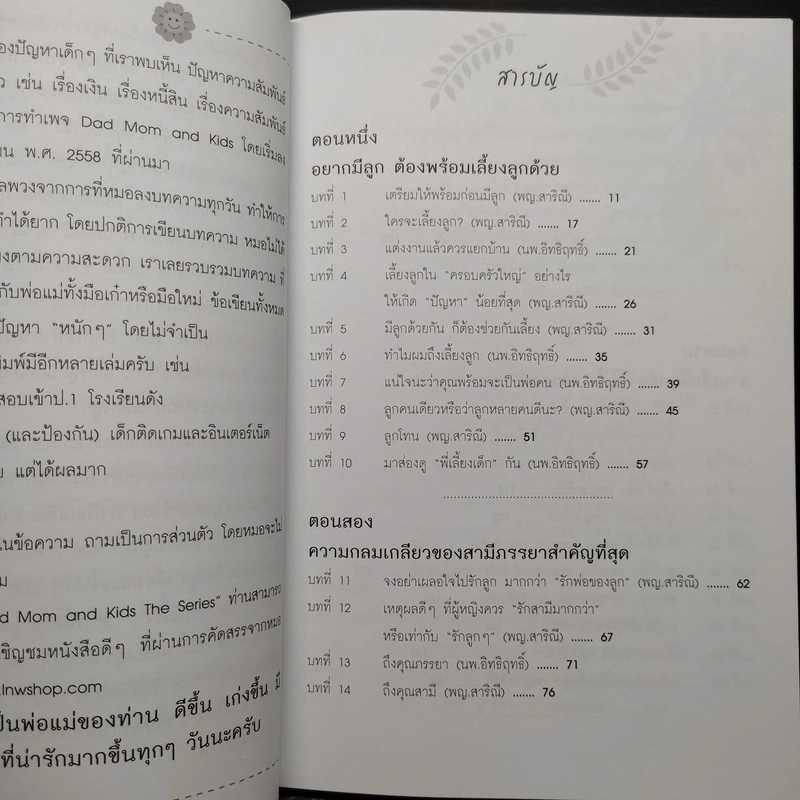 องปัญหาเด็กๆ ที่เราพบเห็น ปัญหาความสัมพันธ์
ว เช่น เรื่องเงิน เรื่องหนี้สิน เรื่องความสัมพันธ์
การทำเพจ Dad Mom and Kids โดยเริ่มลง
ยน พ.ศ. 2558 ที่ผ่านมา
ลพวงจากการที่หมอลงบทความทุกวัน ทำให้การ
ทำได้ยาก โดยปกติการเขียนบทความ หมอไม่ได้
งตามความสะดวก เราเลยรวบรวมบทความ ที่
กับพ่อแม่ทั้งมือเก๋าหรือมือใหม่ ข้อเขียนทั้งหมด
ปัญหา “หนักๆ” โดยไม่จำเป็น
พิมพ์มีอีกหลายเล่มครับ เช่น
สอบเข้าป.1 โรงเรียนดัง
(และป้องกัน) เด็กติดเกมและอินเตอร์เน็ต
ย แต่ได้ผลมาก
นข้อความ ถามเป็นการส่วนตัว โดยหมอจะไม่
ม
d Mom and Kids The Series” ท่านสามารถ
เชิญชมหนังสือดีๆ ที่ผ่านการคัดสรรจากหมอ
.lnwshop.com
ป็นพ่อแม่ของท่าน ดีขึ้น เก่งขึ้น มี
ที่น่ารักมากขึ้นทุกๆ วันนะครับ
สารบัญ
ตอนหนึ่ง
อยากมีลูก ต้องพร้อมเลี้ยงลูกด้วย
บทที่ 1 เตรียมให้พร้อมก่อนมีลูก (พญ.สาริณี) ....... 11
บทที่ 2 ใครจะเลี้ยงลูก? (พญ.สาริณี) ....... 17
บทที่ 3 แต่งงานแล้วควรแยกบ้าน (นพ.อิทธิฤทธิ์) ....... 21
บทที่ 4 เลี้ยงลูกใน “ครอบครัวใหญ่” อย่างไร
ให้เกิด “ปัญหา” น้อยที่สุด (พญ.สาริณี) ....... 26
บทที่ 5 มีลูกด้วยกัน ก็ต้องช่วยกันเลี้ยง (พญ.สาริณี) ....... 31
บทที่ 6 ทำไมผมถึงเลี้ยงลูก (นพ.อิทธิฤทธิ์) ....... 35
บทที่ 7 แน่ใจนะว่าคุณพร้อมจะเป็นพ่อคน (นพ.อิทธิฤทธิ์) ....... 39
บทที่ 8 ลูกคนเดียวหรือว่าลูกหลายคนดีนะ? (พญ.สาริณี) ....... 45
บทที่ 9 ลูกโทน (พญ.สาริณี) ....... 51
บทที่ 10 มาส่องดู “พี่เลี้ยงเด็ก” กัน (นพ.อิทธิฤทธิ์) ....... 57
ตอนสอง
ความกลมเกลียวของสามีภรรยาสำคัญที่สุด
บทที่ 11 จงอย่าเผลอใจไปรักลูก มากกว่า “รักพ่อของลูก” (พญ.สาริณี) ....... 62
บทที่ 12 เหตุผลดีๆ ที่ผู้หญิงควร “รักสามีมากกว่า”
หรือเท่ากับ “รักลูกๆ” (พญ.สาริณี) ....... 67
บทที่ 13 ถึงคุณภรรยา (นพ.อิทธิฤทธิ์) ....... 71
บทที่ 14 ถึงคุณสามี (พญ.สาริณี) ....... 76